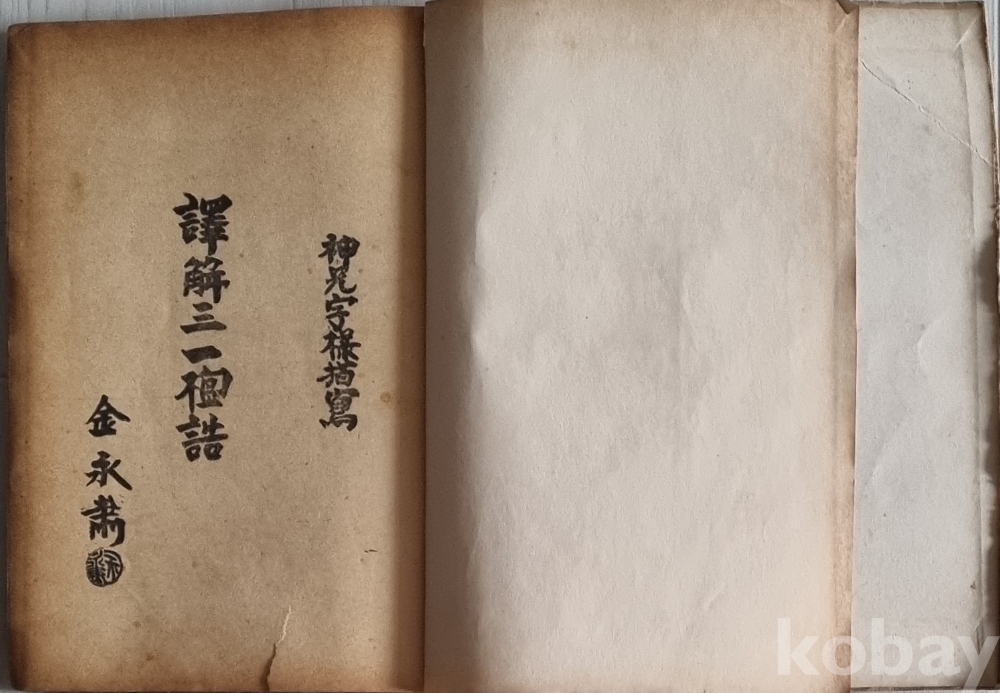 神兄字樣描寫
譯解三一誥
金永肅
kobay